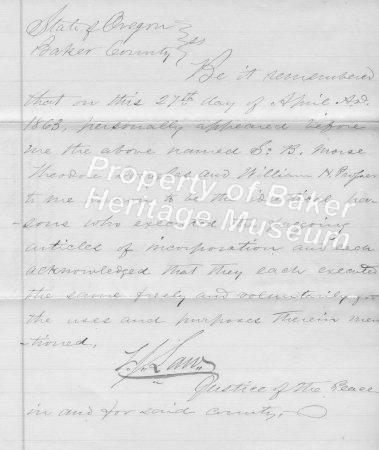 State of Oregon
Baker County ss
Be it remembered
that on this 27th day of April A.D.
1863, personally appeared before
me the above named S. B. Morse
Theodore and William H Packwood
to me known to be the identical per
-sons who executed the foregoing
articles of incorporation and each
acknowledged that they each executed
the same freely and voluntarily for
the uses and purposes therein men
-tioned.
Law
Justice of the Peace
in and for said county.
Property of Baker
Heritage Museum